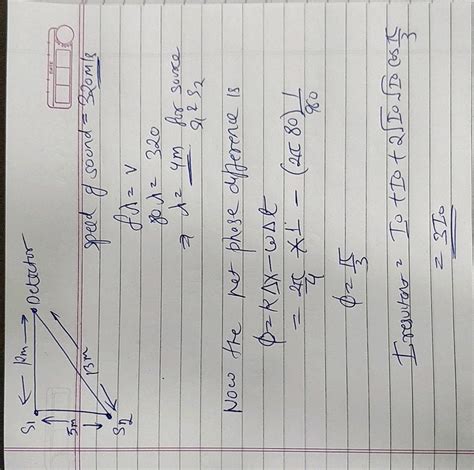 S₁ ← 12m → Detector
5m
13m
S₂
speed of sound = 320m/s
fλ = v
80λ = 320
⇒ λ = 4m for source
S₁ & S₂
Now the net phase difference is
ϕ = KΔx - ωΔt
= 2π/4 × 1 - (2π 80) 1/80
ϕ = π/3
I resultant = I₀ + I₀ + 2√I₀ √I₀ cos π/3
= 3I₀